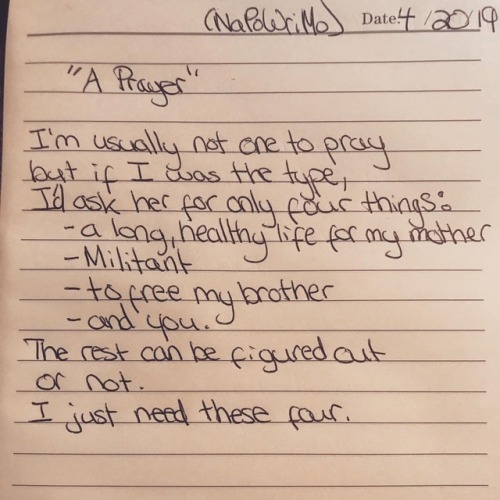 (NaPoWriMo) Date: 4/20/19
"A Prayer"
I'm usually not one to pray
but if I was the type,
I'd ask her for only four things:
- a long, healthy life for my mother
- Militant
- to free my brother
- and you.
The rest can be figured out
or not.
I just need these four.